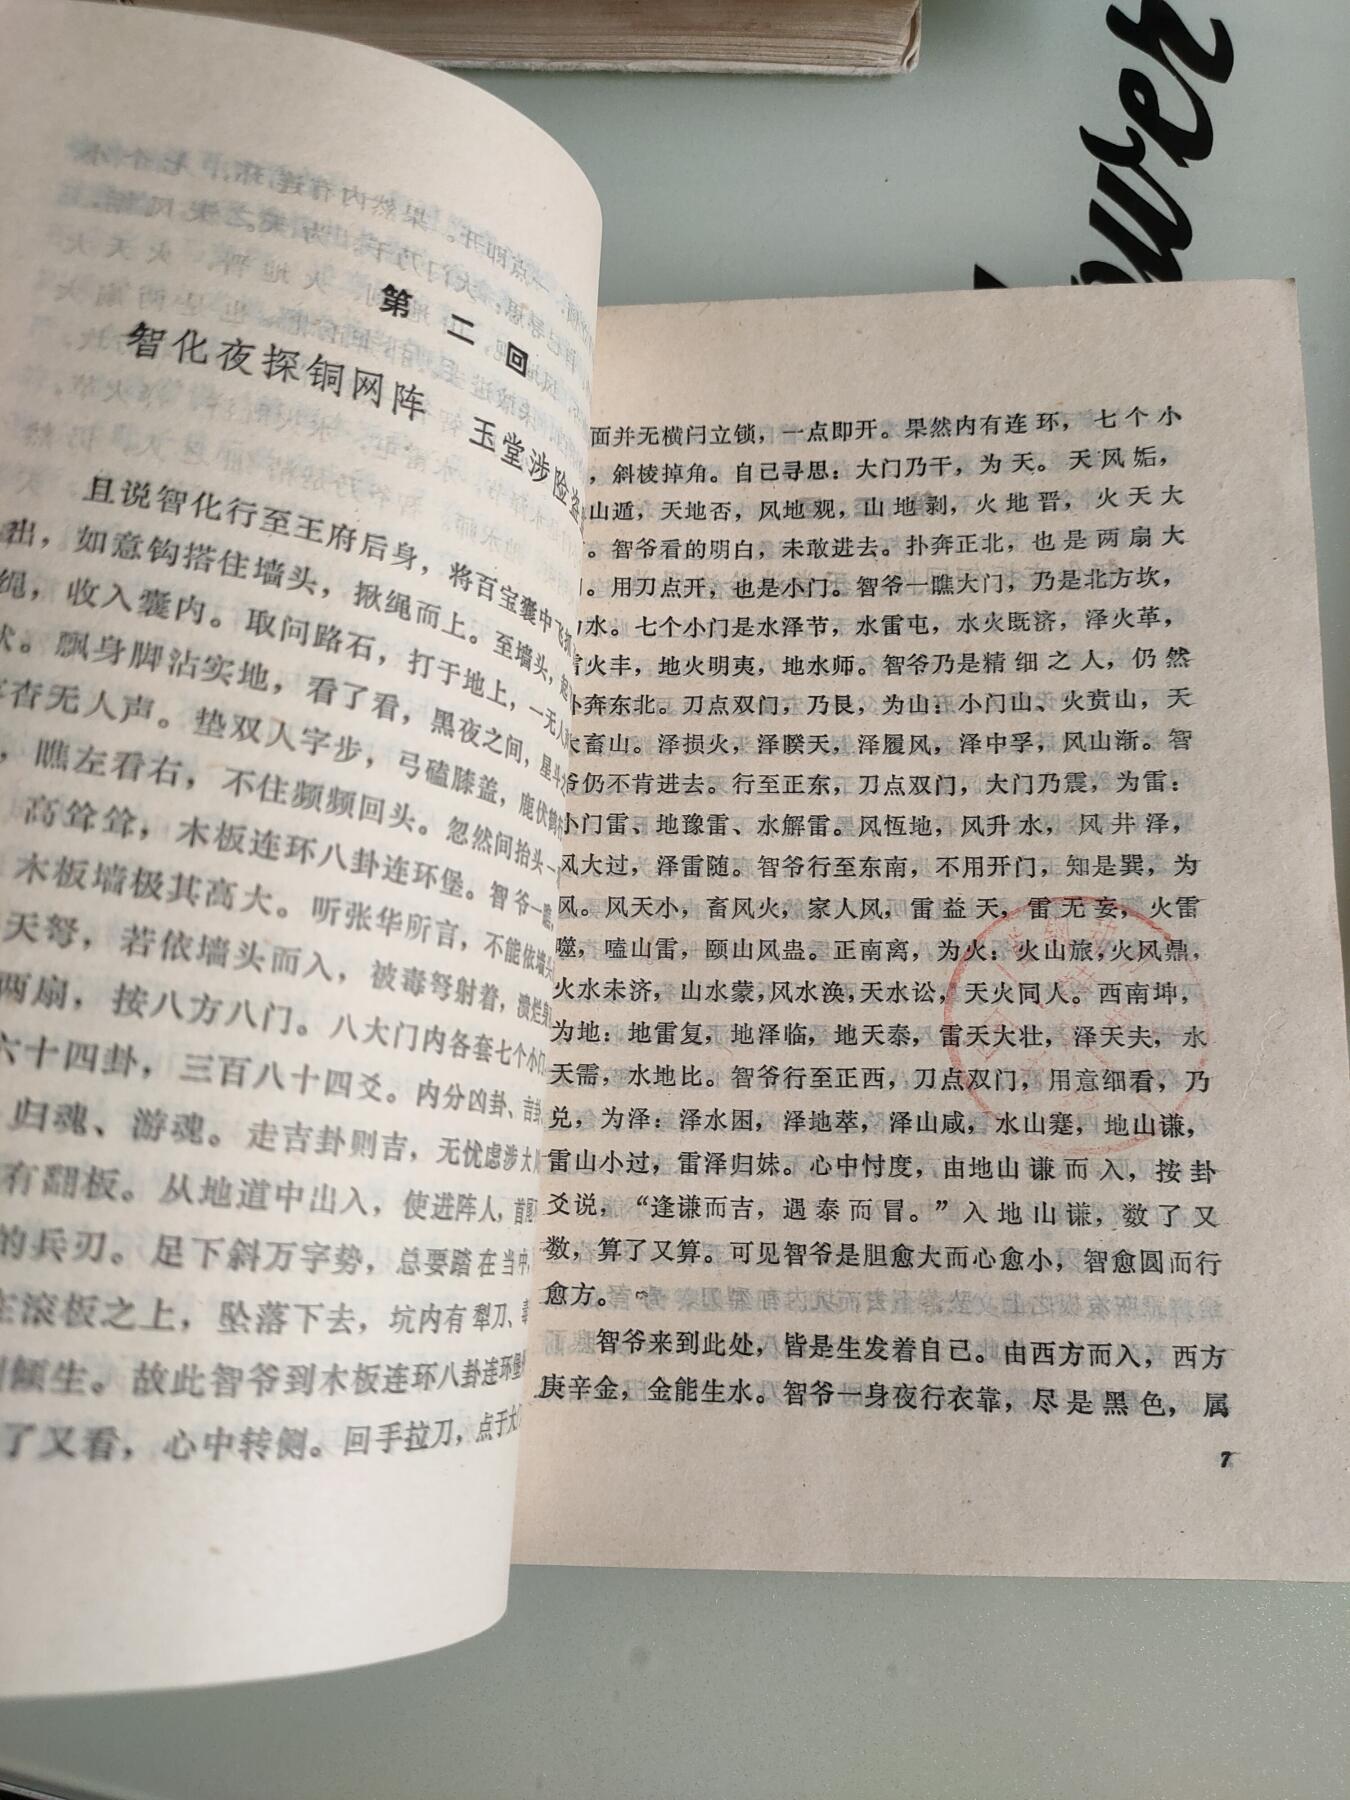 第二回
智化夜探铜网阵 玉堂涉险盗
且说智化行至王府后身，将百宝囊中飞抓
出，如意钩搭住墙头，揪绳而上。至墙头，起
绳，收入囊内。取问路石，打于地上，一无人
。飘身脚沾实地，看了看，黑夜之间，星斗
杳无人声。垫双人字步，弓磕膝盖，鹿伏鹤
，瞧左看右，不住频频回头。忽然间抬头一
高耸耸，木板连环八卦连环堡。智爷一瞧，
木板墙极其高大。听张华所言，不能依墙头
天弩，若依墙头而入，被毒弩射着，溃烂身
两扇，按八方八门。八大门内各套七个小门
六十四卦，三百八十四爻。内分凶卦、吉卦
归魂、游魂。走吉卦则吉，无忧虑涉大
有翻板。从地道中出入，使进阵人，首
的兵刃。足下斜万字势，总要踏在当中
在滚板之上，坠落下去，坑内有犁刀、毒
倾生。故此智爷到木板连环八卦连环堡
了又看，心中转侧。回手拉刀，点于大
面并无横闩立锁，一点即开。果然内有连环，七个小
，斜棱掉角。自己寻思：大门乃干，为天。天风姤，
山遁，天地否，风地观，山地剥，火地晋，火天大
。智爷看的明白，未敢进去。扑奔正北，也是两扇大
。用刀点开，也是小门。智爷一瞧大门，乃是北方坎，
为水。七个小门是水泽节，水雷屯，水火既济，泽火革，
雷火丰，地火明夷，地水师。智爷乃是精细之人，仍然
扑奔东北。刀点双门，乃艮，为山：小门山、火贲山，天
大畜山。泽损火，泽睽天，泽履风，泽中孚，风山渐。智
爷仍不肯进去。行至正东，刀点双门，大门乃震，为雷：
小门雷、地豫雷、水解雷。风恆地，风升水，风井泽，
风大过，泽雷随。智爷行至东南，不用开门，知是巽，为
风。风天小，畜风火，家人风，雷益天，雷无妄，火雷
噬，嗑山雷，颐山风蛊。正南离，为火：火山旅，火风鼎，
火水未济，山水蒙，风水涣，天水讼，天火同人。西南坤，
为地：地雷复，地泽临，地天泰，雷天大壮，泽天夬，水
天需，水地比。智爷行至正西，刀点双门，用意细看，乃
兑，为泽：泽水困，泽地萃，泽山咸，水山蹇，地山谦，
雷山小过，雷泽归妹。心中忖度，由地山谦而入，按卦
爻说，“逢谦而吉，遇泰而冒。”入地山谦，数了又
数，算了又算。可见智爷是胆愈大而心愈小，智愈圆而行
愈方。
智爷来到此处，皆是生发着自己。由西方而入，西方
庚辛金，金能生水。智爷一身夜行衣靠，尽是黑色，属
7